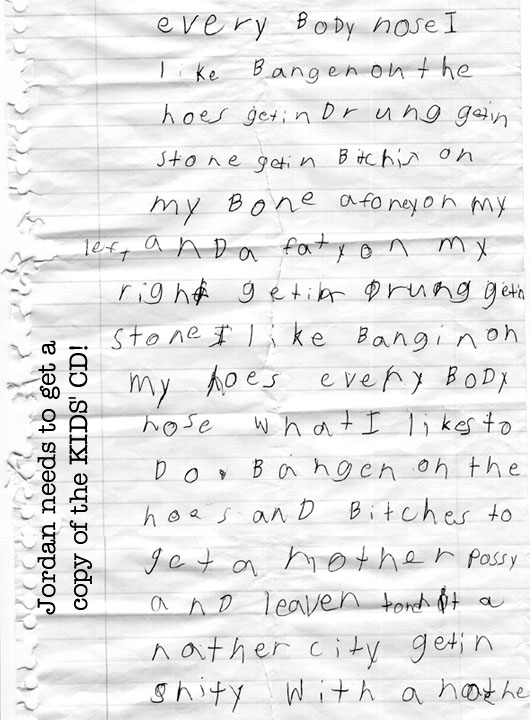 every Body nose I
like Bangen on the
hoes getin Drung getin
stone getin Bitchis on
my Bone a foney on my
left anD a faty on my
right getin Drung getin
stone I like Bangin on
my hoes every BoDy
nose what I likes to
Do. Bangen on the
hoes anD Bitches to
get a nother possy
anD leaven torch it a
nather city getin
shity with a nothe
Jordan needs to get a
copy of the KIDS' CD!